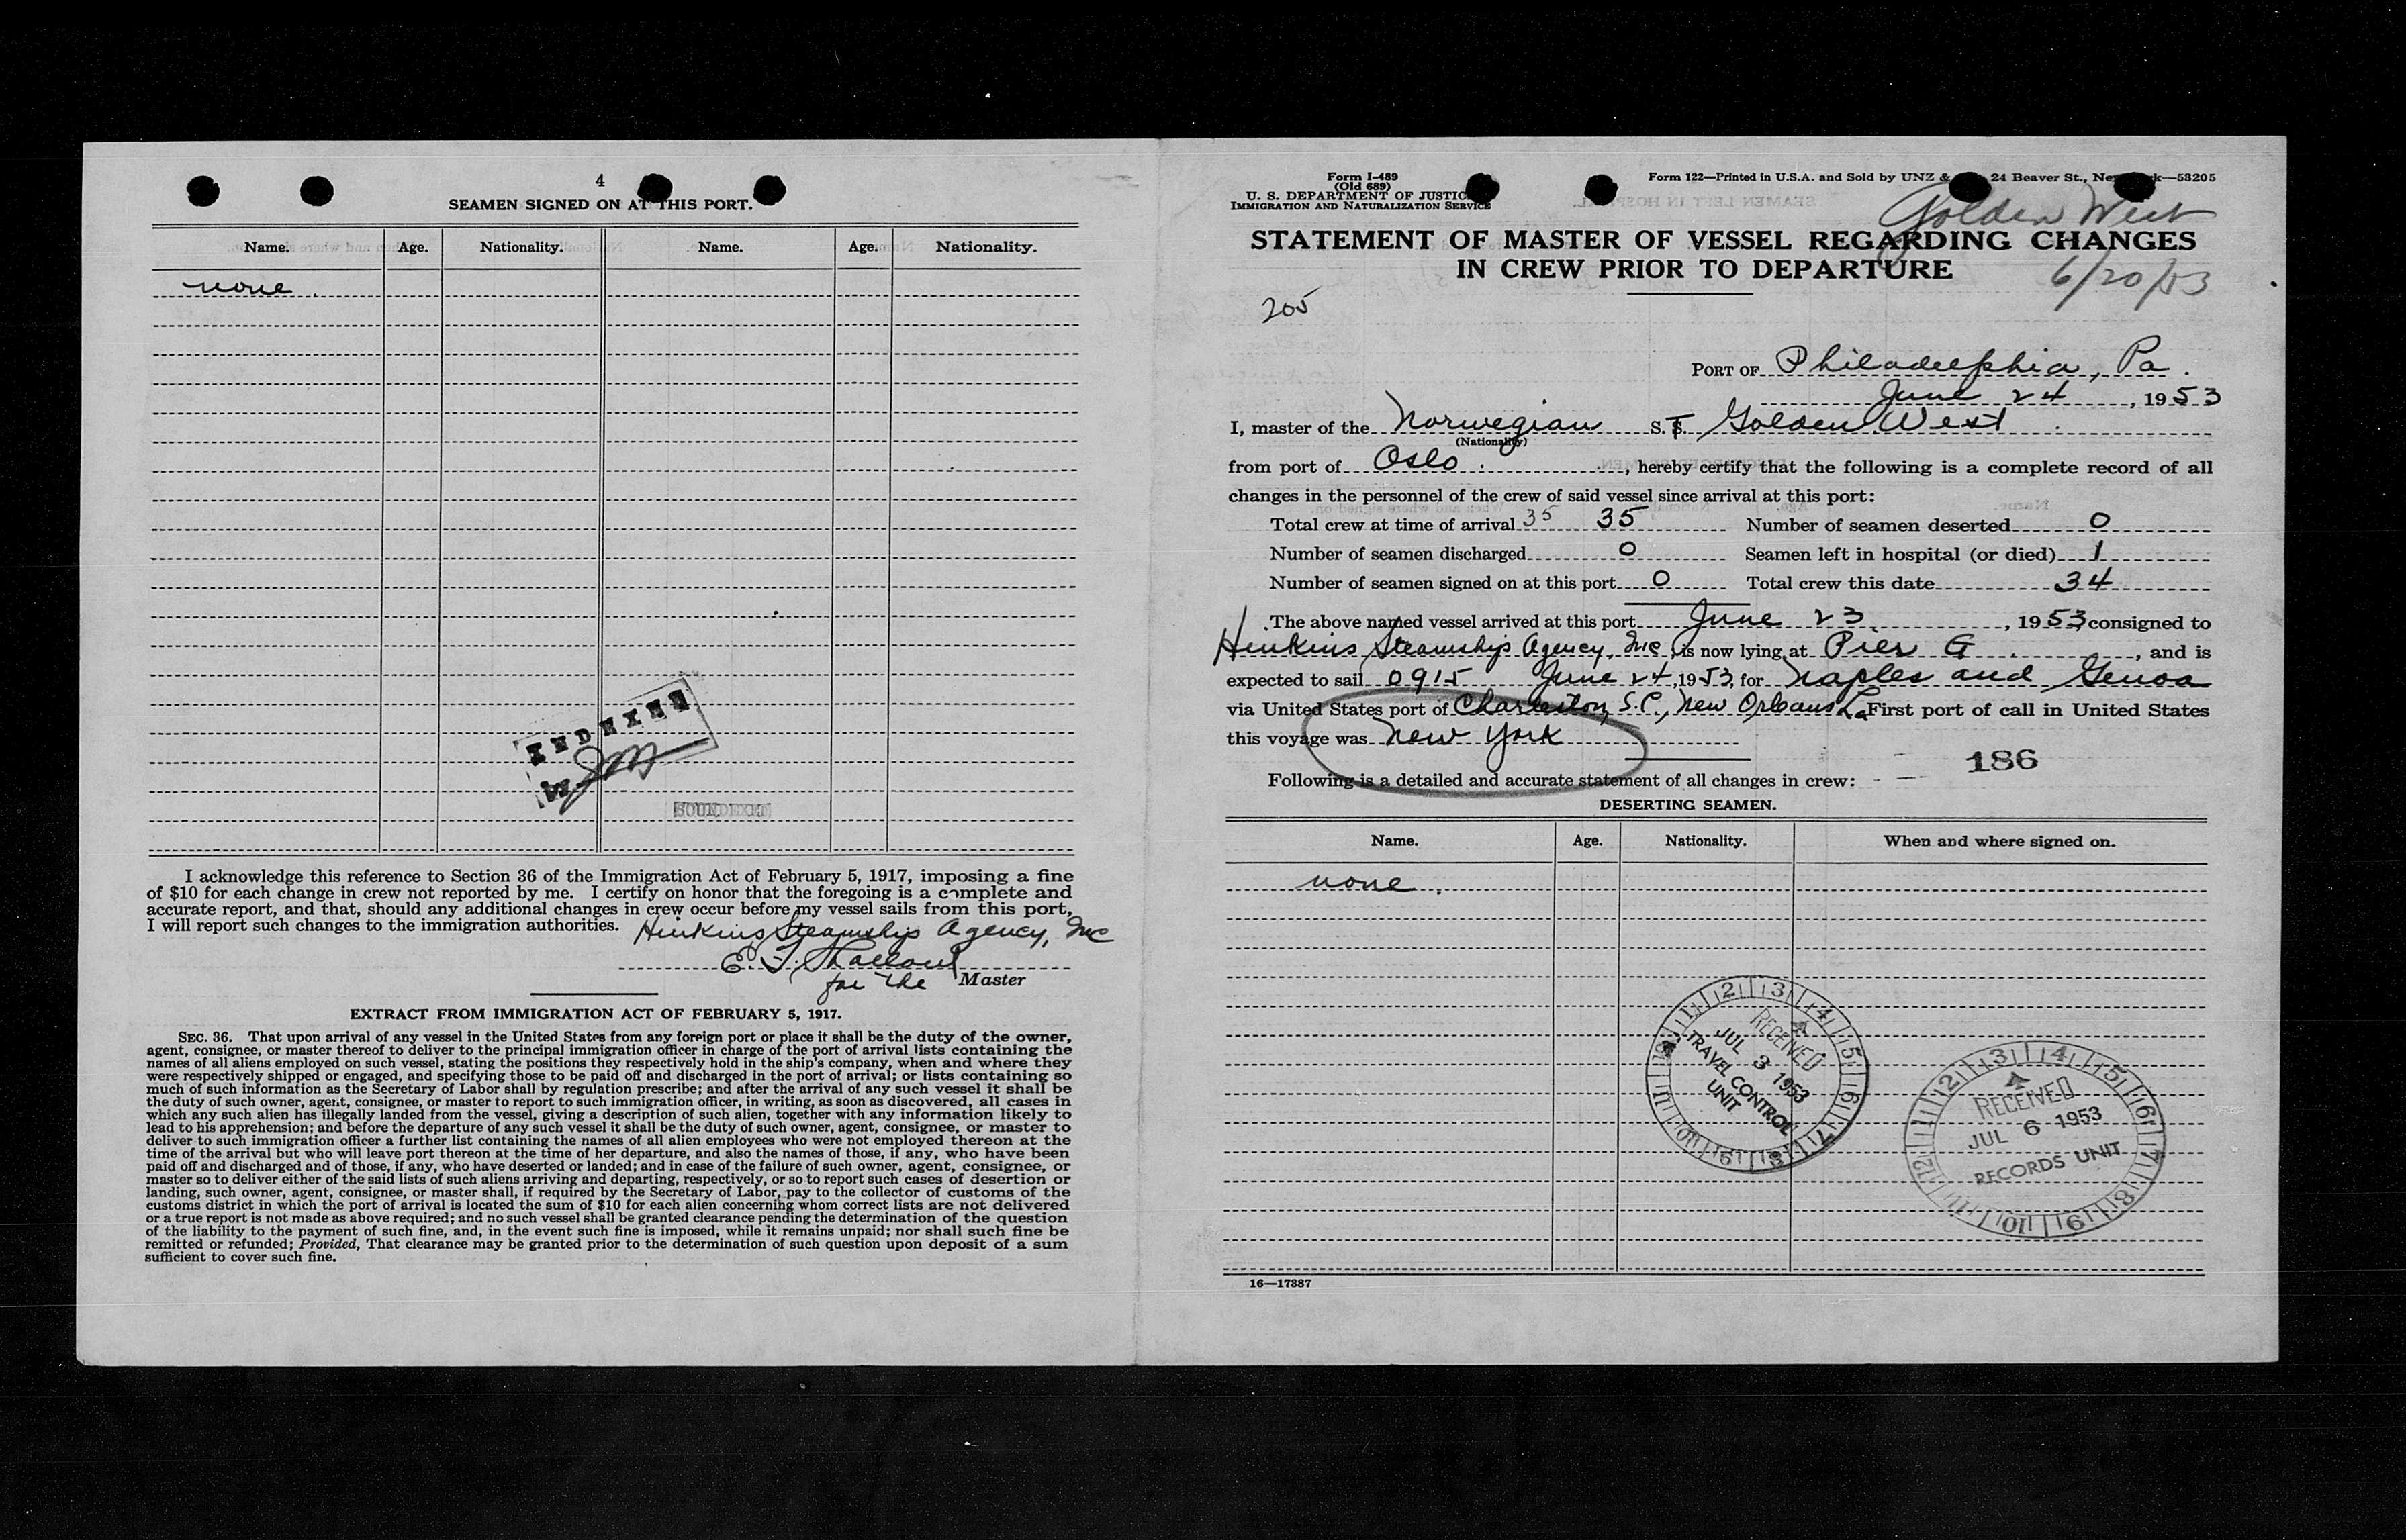 4
SEAMEN SIGNED ON AT THIS PORT.
Name. Age. Nationality. Name. Age. Nationality.
none.
INDEXED
BY
SOUNDEXED
I acknowledge this reference to Section 36 of the Immigration Act of February 5, 1917, imposing a fine
of $10 for each change in crew not reported by me. I certify on honor that the foregoing is a complete and
accurate report, and that, should any additional changes in crew occur before my vessel sails from this port,
I will report such changes to the immigration authorities.
Henkins Steamship Agency, Inc
E. F.
for the Master
EXTRACT FROM IMMIGRATION ACT OF FEBRUARY 5, 1917.
SEC. 36. That upon arrival of any vessel in the United States from any foreign port or place it shall be the duty of the owner,
agent, consignee, or master thereof to deliver to the principal immigration officer in charge of the port of arrival lists containing the
names of all aliens employed on such vessel, stating the positions they respectively hold in the ship's company, when and where they
were respectively shipped or engaged, and specifying those to be paid off and discharged in the port of arrival; or lists containing so
much of such information as the Secretary of Labor shall by regulation prescribe; and after the arrival of any such vessel it shall be
the duty of such owner, agent, consignee, or master to report to such immigration officer, in writing, as soon as discovered, all cases in
which any such alien has illegally landed from the vessel, giving a description of such alien, together with any information likely to
lead to his apprehension; and before the departure of any such vessel it shall be the duty of such owner, agent, consignee, or master to
deliver to such immigration officer a further list containing the names of all alien employees who were not employed thereon at the
time of the arrival but who will leave port thereon at the time of her departure, and also the names of those, if any, who have been
paid off and discharged and of those, if any, who have deserted or landed; and in case of the failure of such owner, agent, consignee, or
master so to deliver either of the said lists of such aliens arriving and departing, respectively, or so to report such cases of desertion or
landing, such owner, agent, consignee, or master shall, if required by the Secretary of Labor, pay to the collector of customs of the
customs district in which the port of arrival is located the sum of $10 for each alien concerning whom correct lists are not delivered
or a true report is not made as above required; and no such vessel shall be granted clearance pending the determination of the question
of the liability to the payment of such fine, and, in the event such fine is imposed, while it remains unpaid; nor shall such fine be
remitted or refunded; Provided, That clearance may be granted prior to the determination of such question upon deposit of a sum
sufficient to cover such fine.
Form I-489
(Old 689)
U. S. DEPARTMENT OF JUSTICE
IMMIGRATION AND NATURALIZATION SERVICE
Form 122—Printed in U.S.A. and Sold by UNZ & 24 Beaver St., New York—53205
Golden West
STATEMENT OF MASTER OF VESSEL REGARDING CHANGES
IN CREW PRIOR TO DEPARTURE
6/20/53
205
PORT OF Philadelphia, Pa.
June 24, 1953
I, master of the Norwegian S. S. Golden West
(Nationality)
from port of Oslo, hereby certify that the following is a complete record of all
changes in the personnel of the crew of said vessel since arrival at this port:
Total crew at time of arrival 35 35 Number of seamen deserted 0
Number of seamen discharged 0 Seamen left in hospital (or died) 1
Number of seamen signed on at this port 0 Total crew this date 34
The above named vessel arrived at this port June 23, 1953 consigned to
Henkins Steamship Agency, Inc, is now lying at Pier G, and is
expected to sail 0915 June 24, 1953, for Naples and Genoa
via United States port of Charleston, S.C., New Orleans La First port of call in United States
this voyage was New York
186
Following is a detailed and accurate statement of all changes in crew:
DESERTING SEAMEN.
Name. Age. Nationality. When and where signed on.
none.
RECEIVED
JUL 3 1953
TRAVEL CONTROL
UNIT
RECEIVED
JUL 6 1953
RECORDS UNIT
16—17887